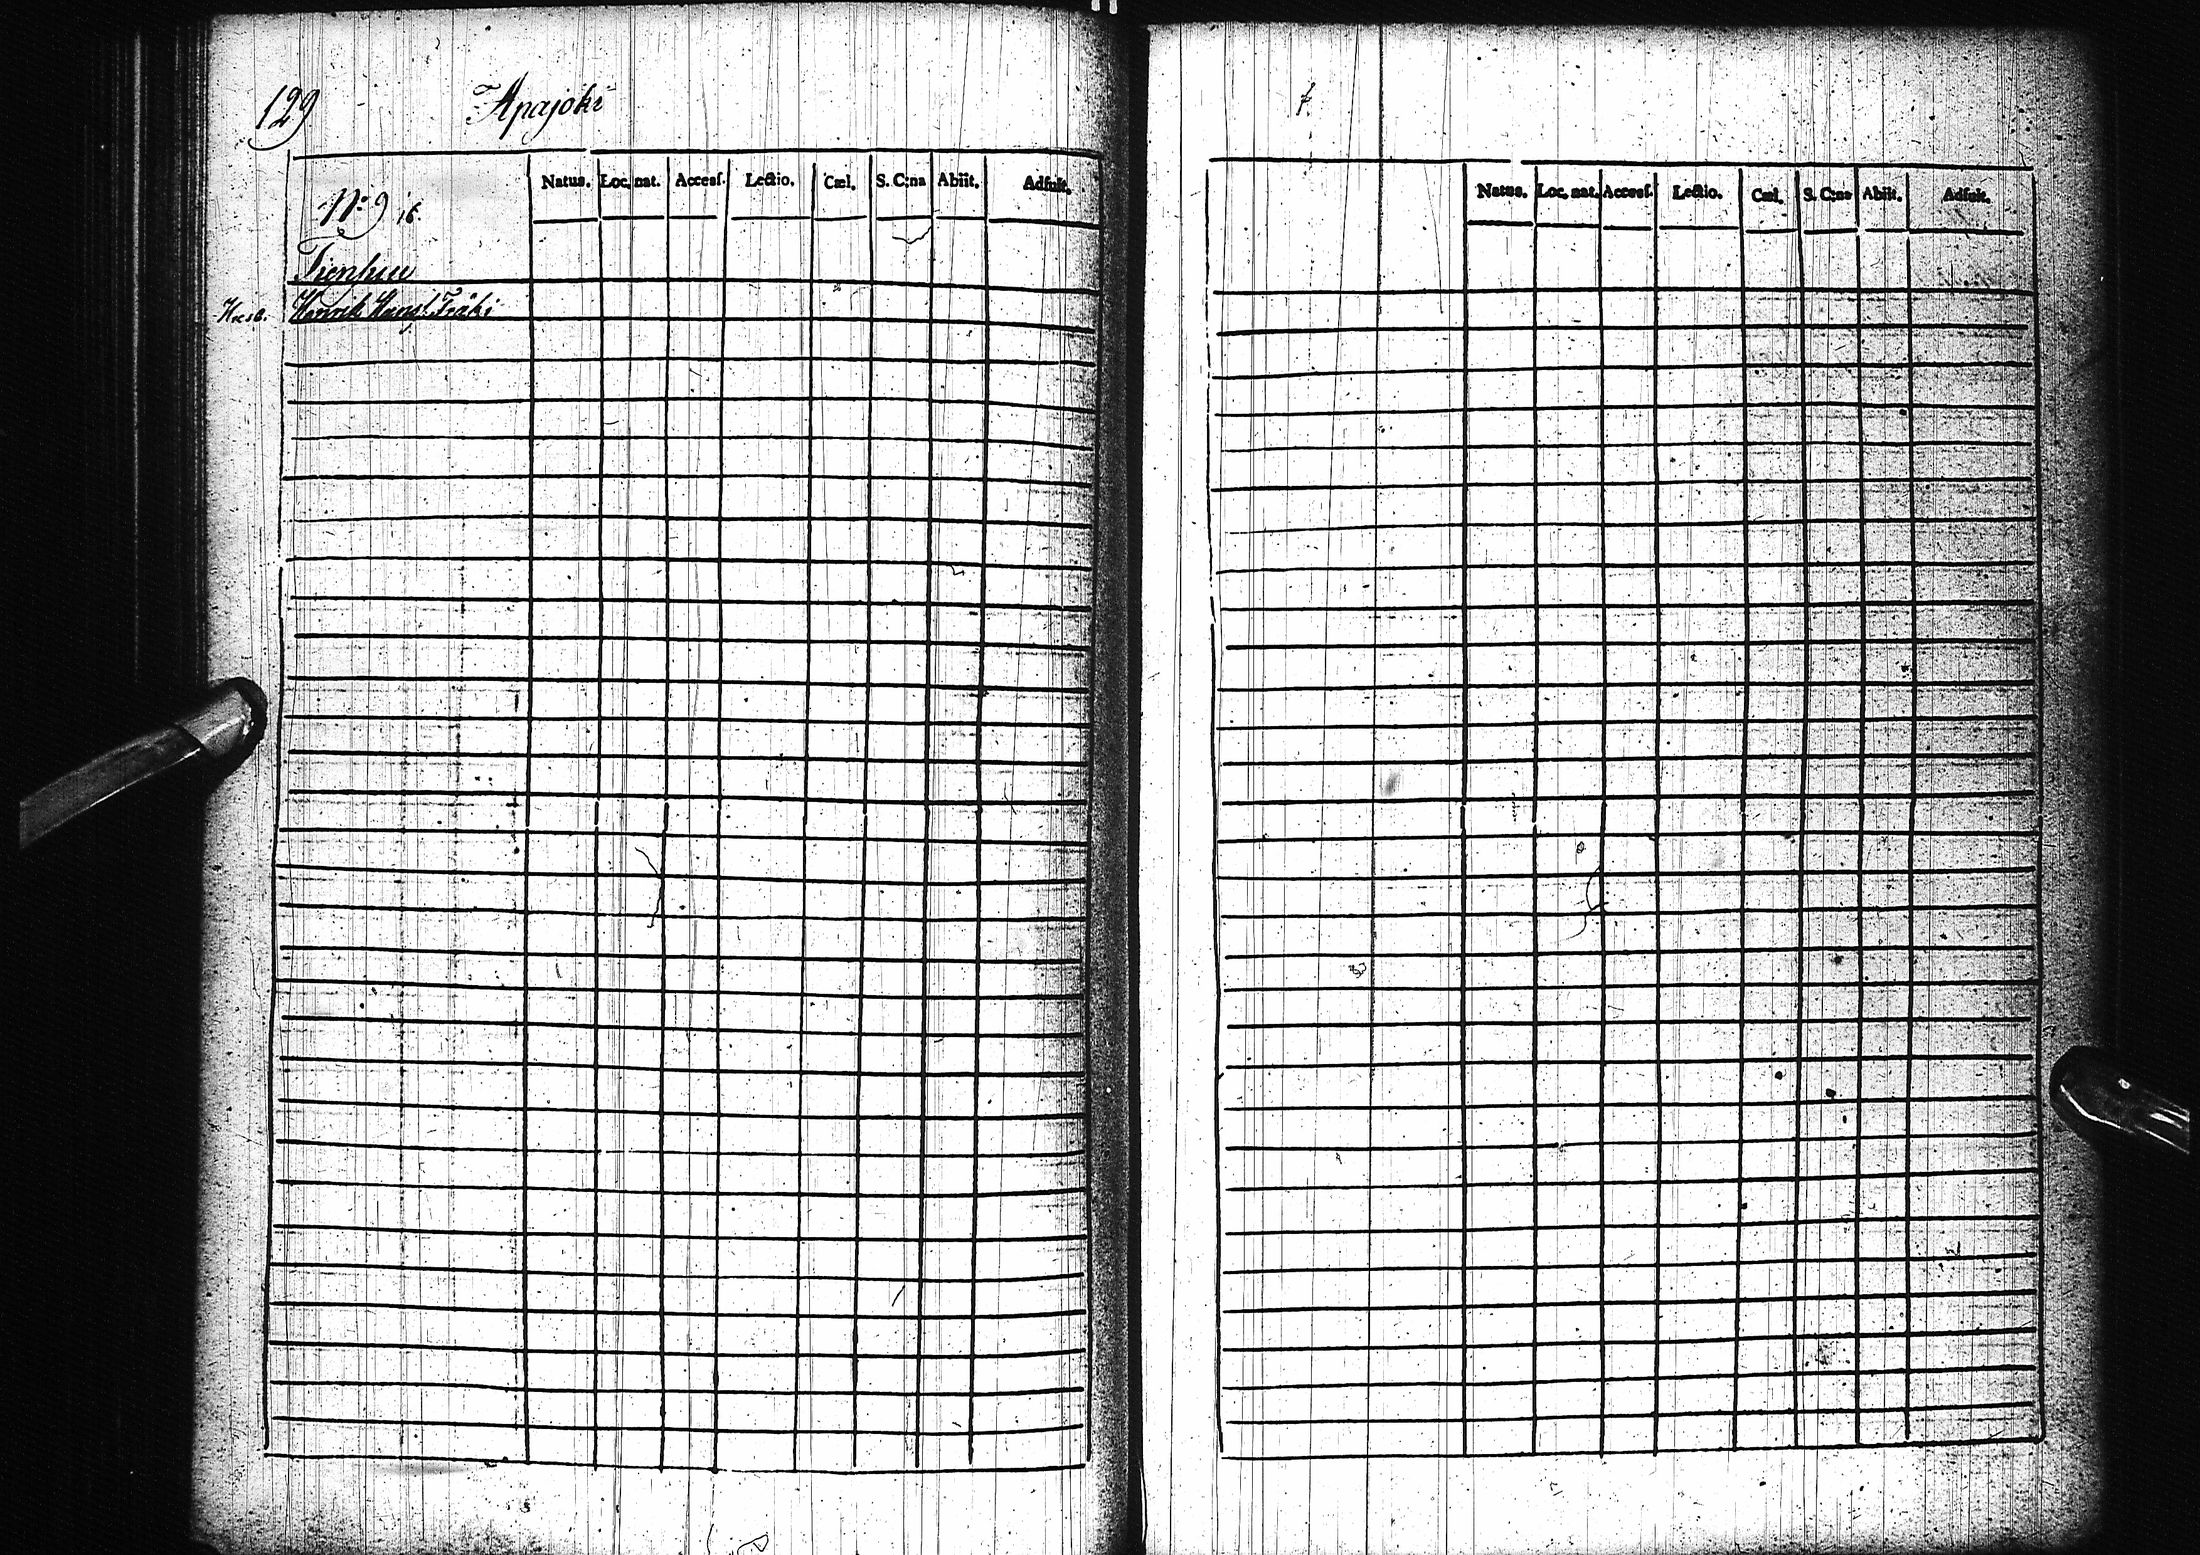 129 Apajoki
Natus. Loc. nat. Accesſ. Lectio. Cæl. S. C:na Abiit. Adfuit.
N:o 9
Tiensuu
Henrik
Natus. Loc. nat. Accesſ. Lectio. Cæl. S. C:na Abiit. Adfuit.